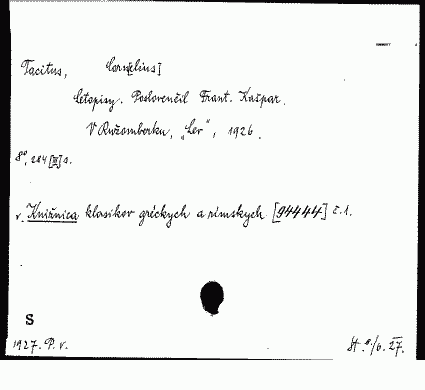 Tacitus, Corn[elius]
Letopisy. Poslovenčil Frant. Kašpar.
V Ružomberku, „Lev", 1926.
8°, 284 [III] s.
v. Knižnica klasikov gréckych a rímskych [94444] č. 1.
S
1927. P. v.
27.